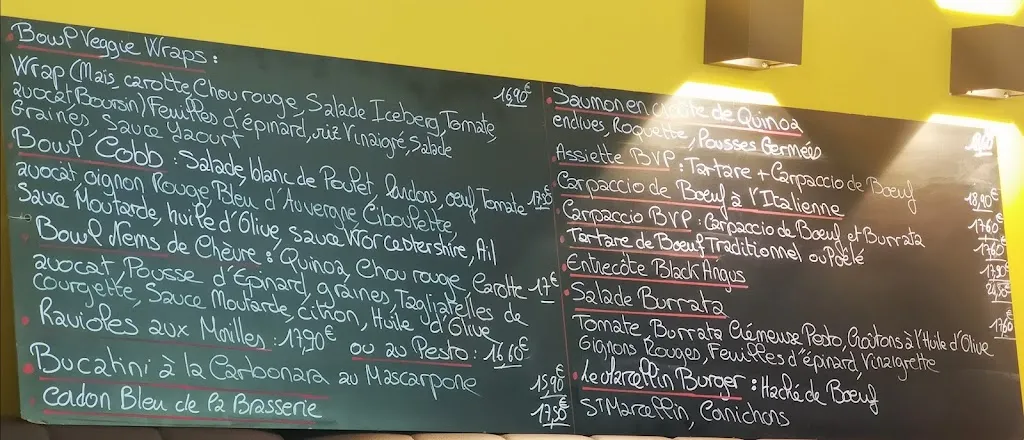 Bowl Veggie Wraps :
Wrap (Maïs, carotte, Chou rouge, Salade Iceberg, Tomate, 16,90€
avocat Boursin) Feuilles d'épinard, riz Vinaigré, Salade
Graines, Sauce Yaourt
Bowl Cobb : Salade, blanc de Poulet, lardons, oeuf, Tomate
avocat, oignon Rouge, Bleu d'Auvergne, Ciboulette,
Sauce Moutarde, huile d'Olive, sauce Worcestershire, Ail
Bowl Nems de Chèvre : Quinoa, Chou rouge, Carotte 17€
avocat, Pousse d'Épinard, graines, Tagliatelles de
Courgette, Sauce Moutarde, Citron, Huile d'Olive
Ravioles aux Morilles : 17,90€ ou au Pesto : 16,60€
Bucatini à la Carbonara au Mascarpone 15,90€
Cadon Bleu de la Brasserie 17,50€
Saumon en croûte de Quinoa
endives, Roquette, Pousses Germées
Assiette BVP : Tartare + Carpaccio de Boeuf 18,90€
Carpaccio de Boeuf à l'Italienne 17,60
Carpaccio BVP : Carpaccio de Boeuf et Burrata
Tartare de Boeuf Traditionnel ou Poêlé
Entrecôte Black Angus
Salade Burrata 17,60
Tomate Burrata Crémeuse Pesto, Croûtons à l'Huile d'Olive
Oignons Rouges, Feuilles d'épinard, Vinaigrette
Le Marcellin Burger : Haché de Boeuf
St Marcellin, Cornichons